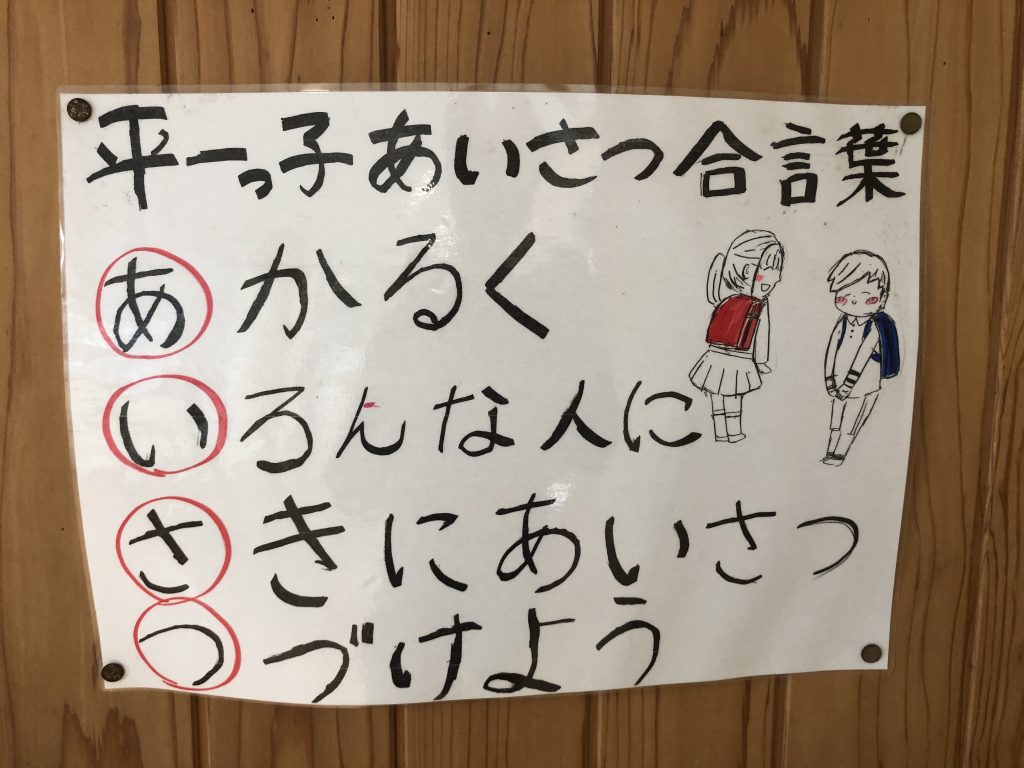 平一っ子あいさつ合言葉
あかるく
いろんな人に
さきにあいさつ
つづけよう